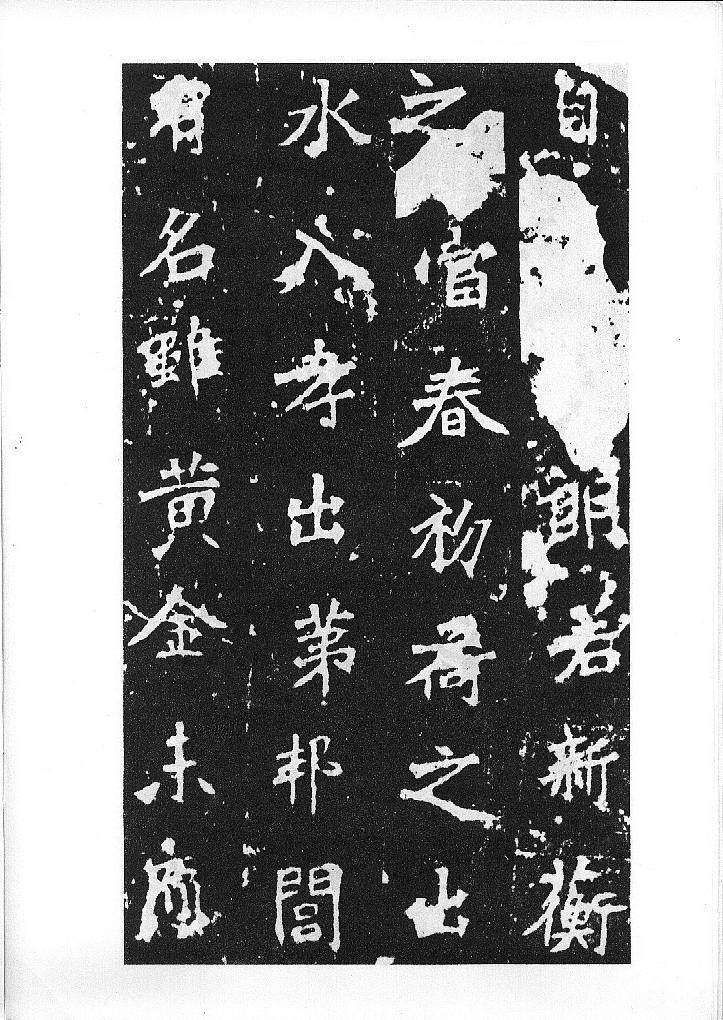 自朗若新蘅
之當春初荷之出
水入孝出第邦閭
有名雖黃金未應